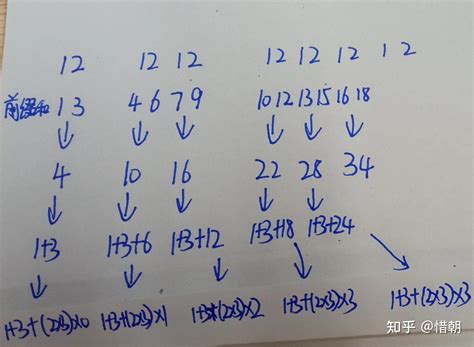 12 12 12 12 12 12 1 2
前缀和 13 46 79 10 12 13 15 16 18
4 10 16 22 28 34
1+3 1+3+6 1+3+12 1+3+18 1+3+24
1+3+(2×3)×0 1+3+(2×3)×1 1+3+(2×3)×2 1+3+(2×3)×3 1+3+(2×3)×3
知乎 @惜朝